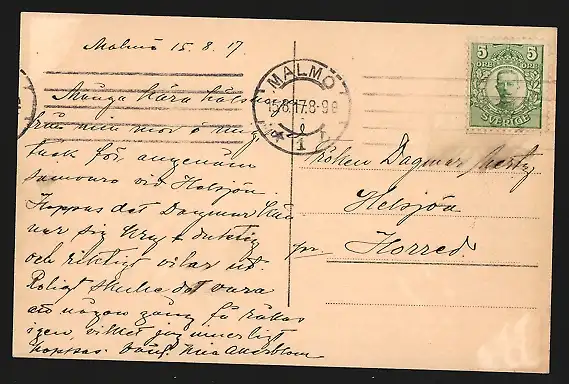 Malmö 15.8.17
Många kära hälsn
från min mor o mig
tack för angenäm
samvaro vid Helsjön.
Hoppas det Dagmar kän
ner sig kry + duktig
och riktigt vilar ut.
Roligt skulle det vara
att någon gång få råkas
igen, vilket jag innerligt
hoppas.
MALMÖ
15.8.17.8-9
1
5 5
ÖRE ÖRE
SVERIGE
Fröken Dagmar Hertz
Helsjön
pr Horred.